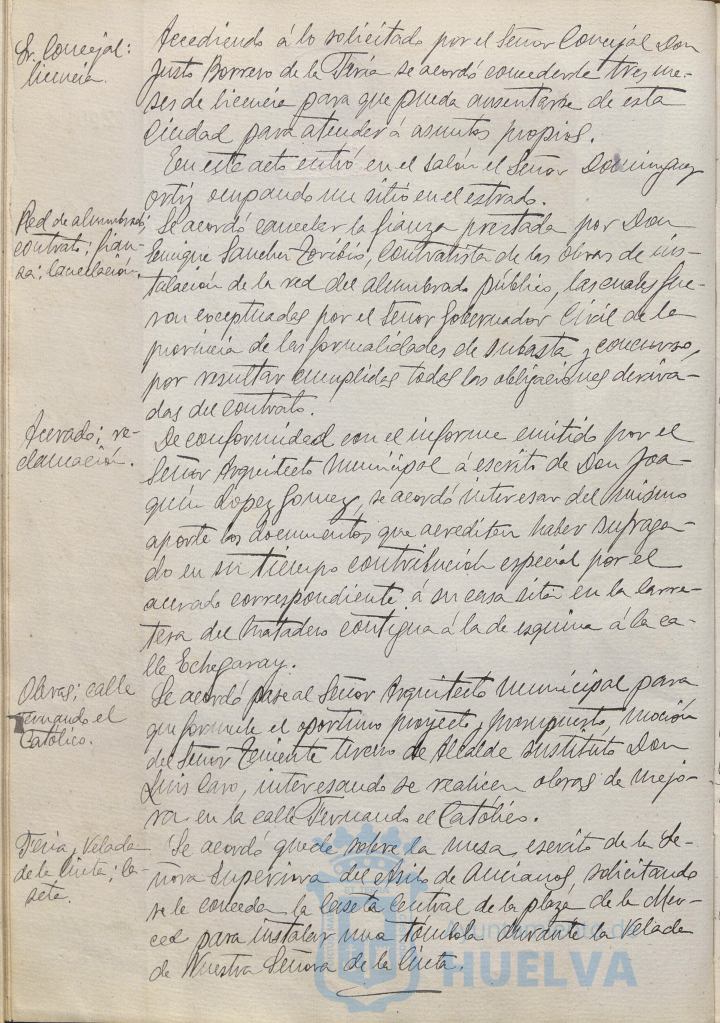 Sr. Concejal:
licencia.
Accediendo á lo solicitado por el Señor Concejal Don
Justo Borrero de la Feria se acordó concederle tres me-
ses de licencia para que pueda ausentarse de esta
Ciudad para atender á asuntos propios.
En este acto entró en el salón el Señor Dominguez
Ortiz ocupando un sitio en el estrado.
Red de alumbrado;
contrato; fian-
za; cancelación.
Se acordó cancelar la fianza prestada por Don
Enrique Sanchez Toribio, contratista de las obras de ins-
talación de la red del alumbrado público, las cuales fue-
ron exceptuadas por el Señor Gobernador Civil de la
provincia de las formalidades de subasta y concurso,
por resultar cumplidas todas las obligaciones deriva-
das del contrato.
Acerado; re-
clamación.
De conformidad con el informe emitido por el
Señor Arquitecto Municipal á escrito de Don Joa-
quin López Gomez, se acordó interesar del mismo
aporte los documentos que acrediten haber sufraga-
do en su tiempo contribución especial por el
acerado correspondiente á su casa sita en la Carre-
tera del Matadero contigua á la de esquina á la ca-
lle Echegaray.
Obras; calle
Fernando el
Católico.
Se acordó pase al Señor Arquitecto Municipal para
que formule el oportuno proyecto y presupuesto, moción
del Señor Teniente tercero de Alcalde sustituto Don
Luis Caro, interesando se realicen obras de mejo-
ra en la calle Fernando el Católico.
Feria y Velada
de la Cinta; ca-
seta.
Se acordó quede sobre la mesa, escrito de la Se-
ñora Superiora del Asilo de Ancianos, solicitando
se le conceda la Caseta Central de la plaza de la Mer-
ced para instalar una tómbola durante la Velada
de Nuestra Señora de la Cinta.
Ayuntamiento de
HUELVA